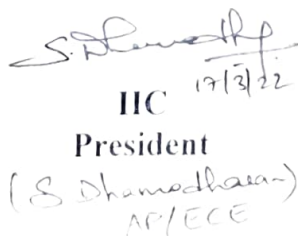 S. Dhamodh
17/3/22
IIC
President
(S Dhamodharan)
AP/ECE